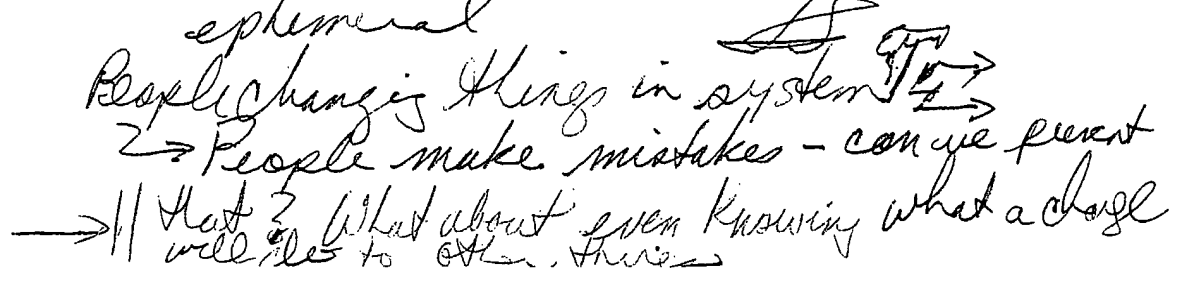 ephemeral
People changing things in system
People make mistakes - can we prevent
that? What about even knowing what a change
will do to other things